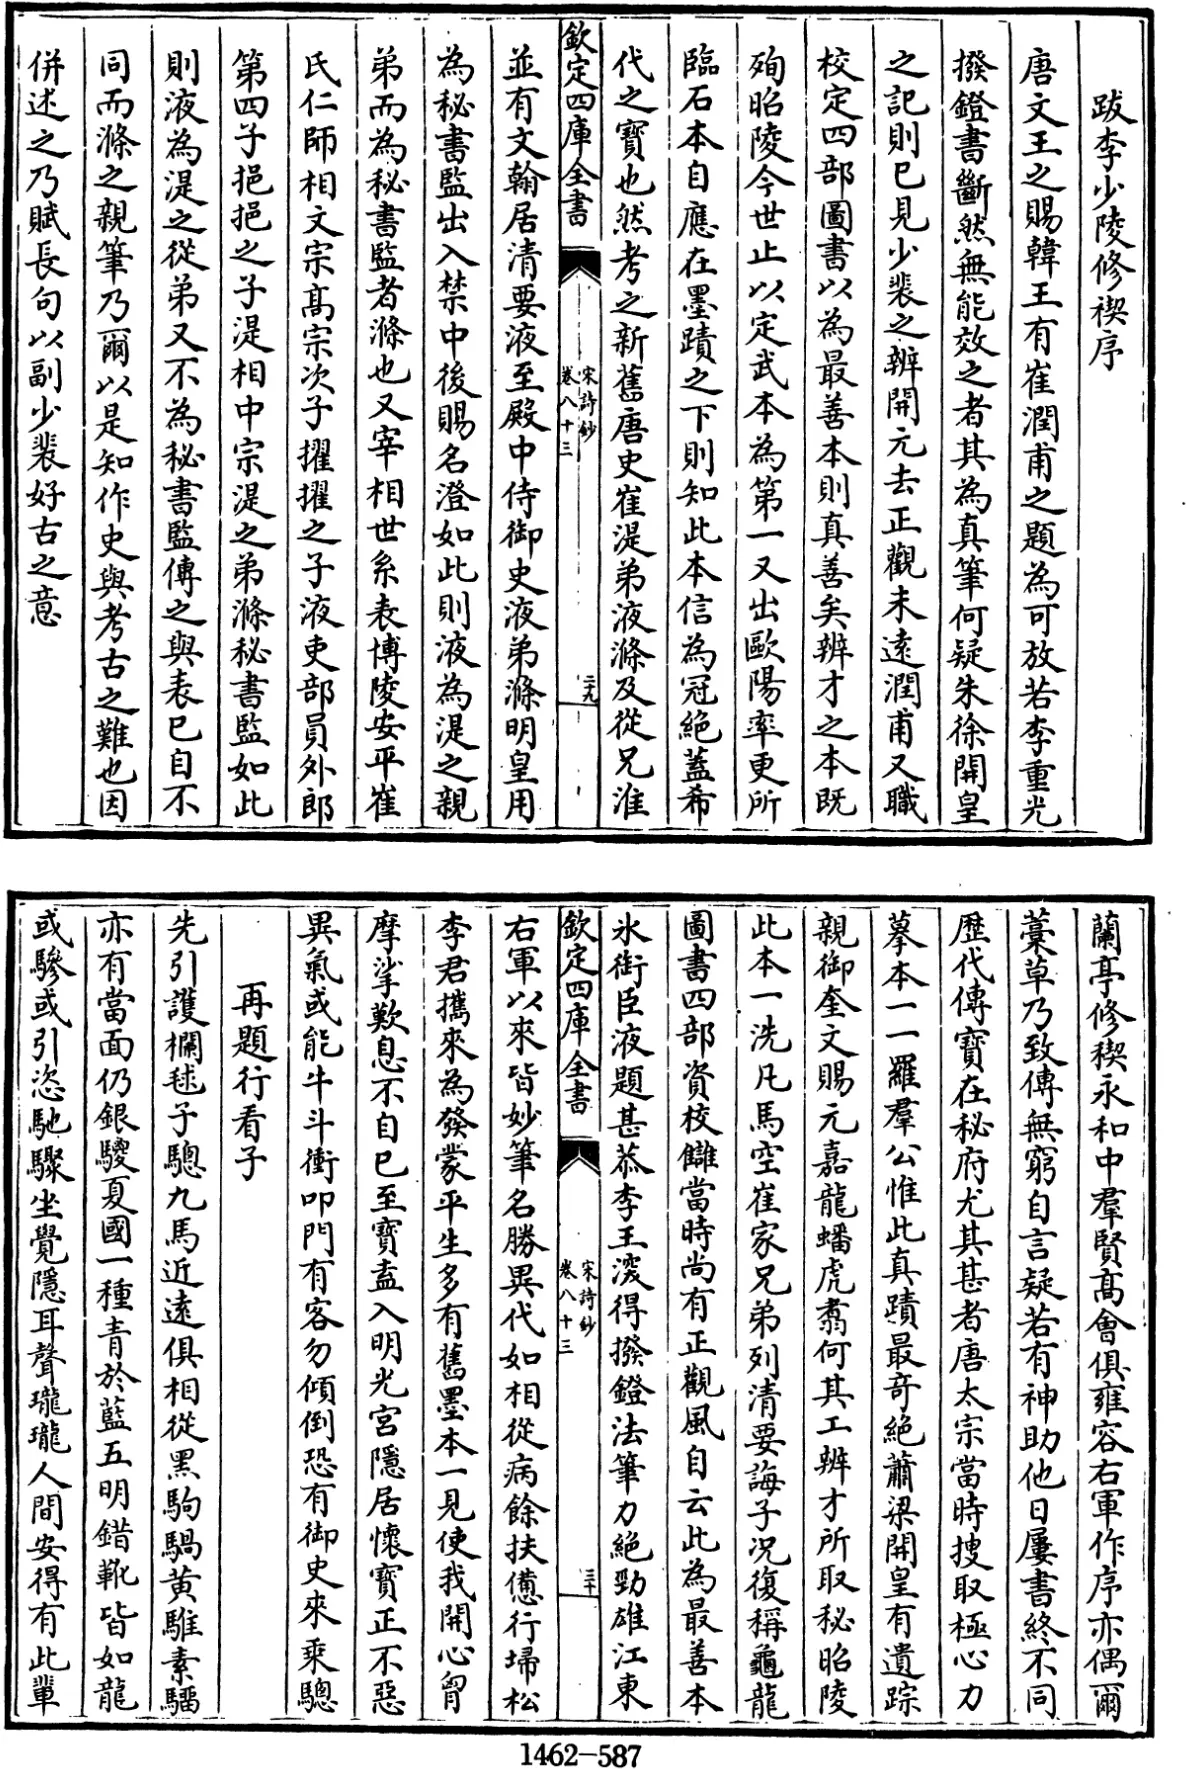 跋李少陵修禊序
唐文王之賜韓王有崔潤甫之題為可放若李重光
撥鐙書斷然無能效之者其為真筆何疑朱徐開皇
之記則已見少裴之辨開元去正觀未遠潤甫又職
校定四部圖書以為最善本則真善矣辨才之本既
殉昭陵今世止以定武本為第一又出歐陽率更所
臨石本自應在墨蹟之下則知此本信為冠絶蓋希
代之寶也然考之新舊唐史崔湜弟液滌及從兄淮
欽定四庫全書
宋詩鈔
卷八十三
二九
並有文翰居清要液至殿中侍御史液弟滌明皇用
為秘書監出入禁中後賜名澄如此則液為湜之親
弟而為秘書監者滌也又宰相世系表博陵安平崔
氏仁師相文宗髙宗次子擢擢之子液吏部員外郎
第四子挹挹之子湜相中宗湜之弟滌秘書監如此
則液為湜之從弟又不為秘書監傳之與表已自不
同而滌之親筆乃爾以是知作史與考古之難也因
併述之乃賦長句以副少裴好古之意
蘭亭修稧永和中羣賢髙會俱雍容右軍作序亦偶爾
藁草乃致傳無窮自言疑若有神助他日屢書終不同
歴代傳寶在秘府尤其甚者唐太宗當時搜取極心力
摹本一一羅羣公惟此真蹟最竒絶蕭梁開皇有遺踪
親御奎文賜元嘉龍蟠虎翥何其工辨才所取秘昭陵
此本一洗凡馬空崔家兄弟列清要誨子况復稱龜龍
圖書四部資校讎當時尚有正觀風自云此為最善本
氷銜臣液題甚恭李王淺得撥鐙法筆力絶勁雄江東
欽定四庫全書
宋詩鈔
卷八十三
三十
右軍以來皆妙筆名勝異代如相從病餘扶憊行埽松
李君攜來為發蒙平生多有舊墨本一見使我開心胷
摩挲歎息不自已至寶盍入明光宮隱居懷寶正不惡
異氣或能牛斗衝叩門有客勿傾倒恐有御史來乘驄
再題行看子
先引護欄毬子驄九馬近逺俱相從黒駒騧黄騅素驑
亦有當面仍銀騣夏國一種青於藍五明錯靴皆如龍
或驂或引恣馳驟坐覺隱耳聲瓏瓏人間安得有此輩
1462-587